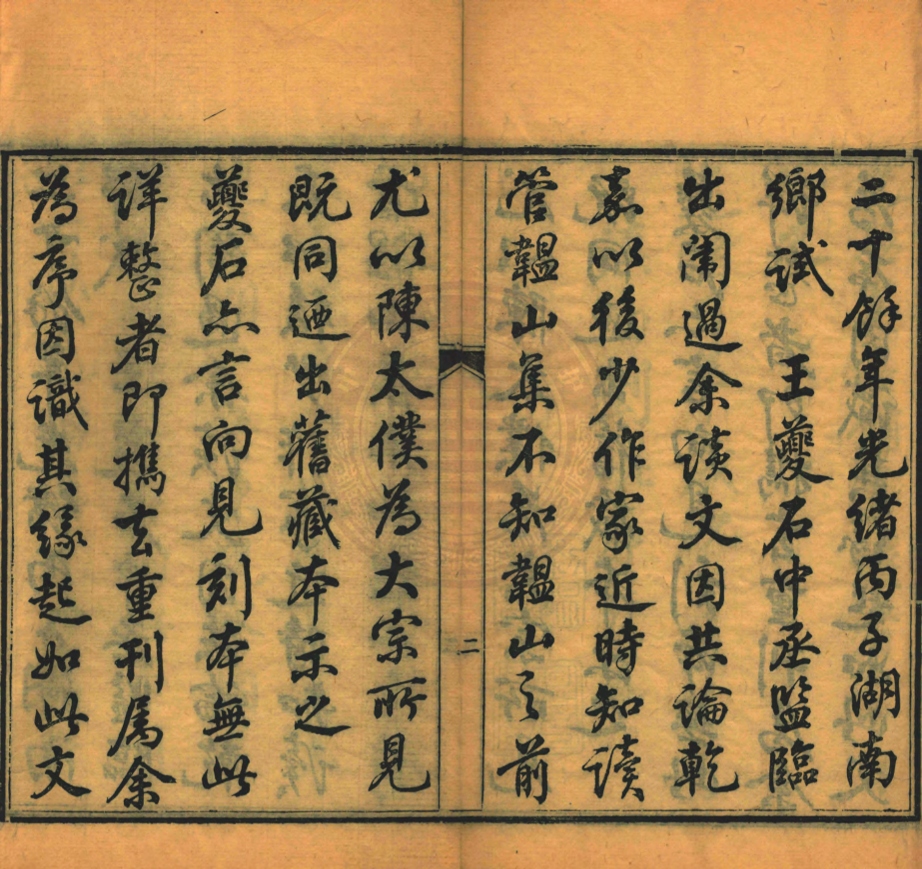 二十餘年光緒丙子湖南
鄉試　王夔石中丞監臨
出闈過余談文因共論乾
嘉以後少作家近時知讀
管韞山集不知韞山之前
二
尤以陳太僕為大宗所見
既同迺出舊藏本示之
夔石亦言向見刻本無此
詳整者即攜去重刊屬余
為序因識其緣起如此文